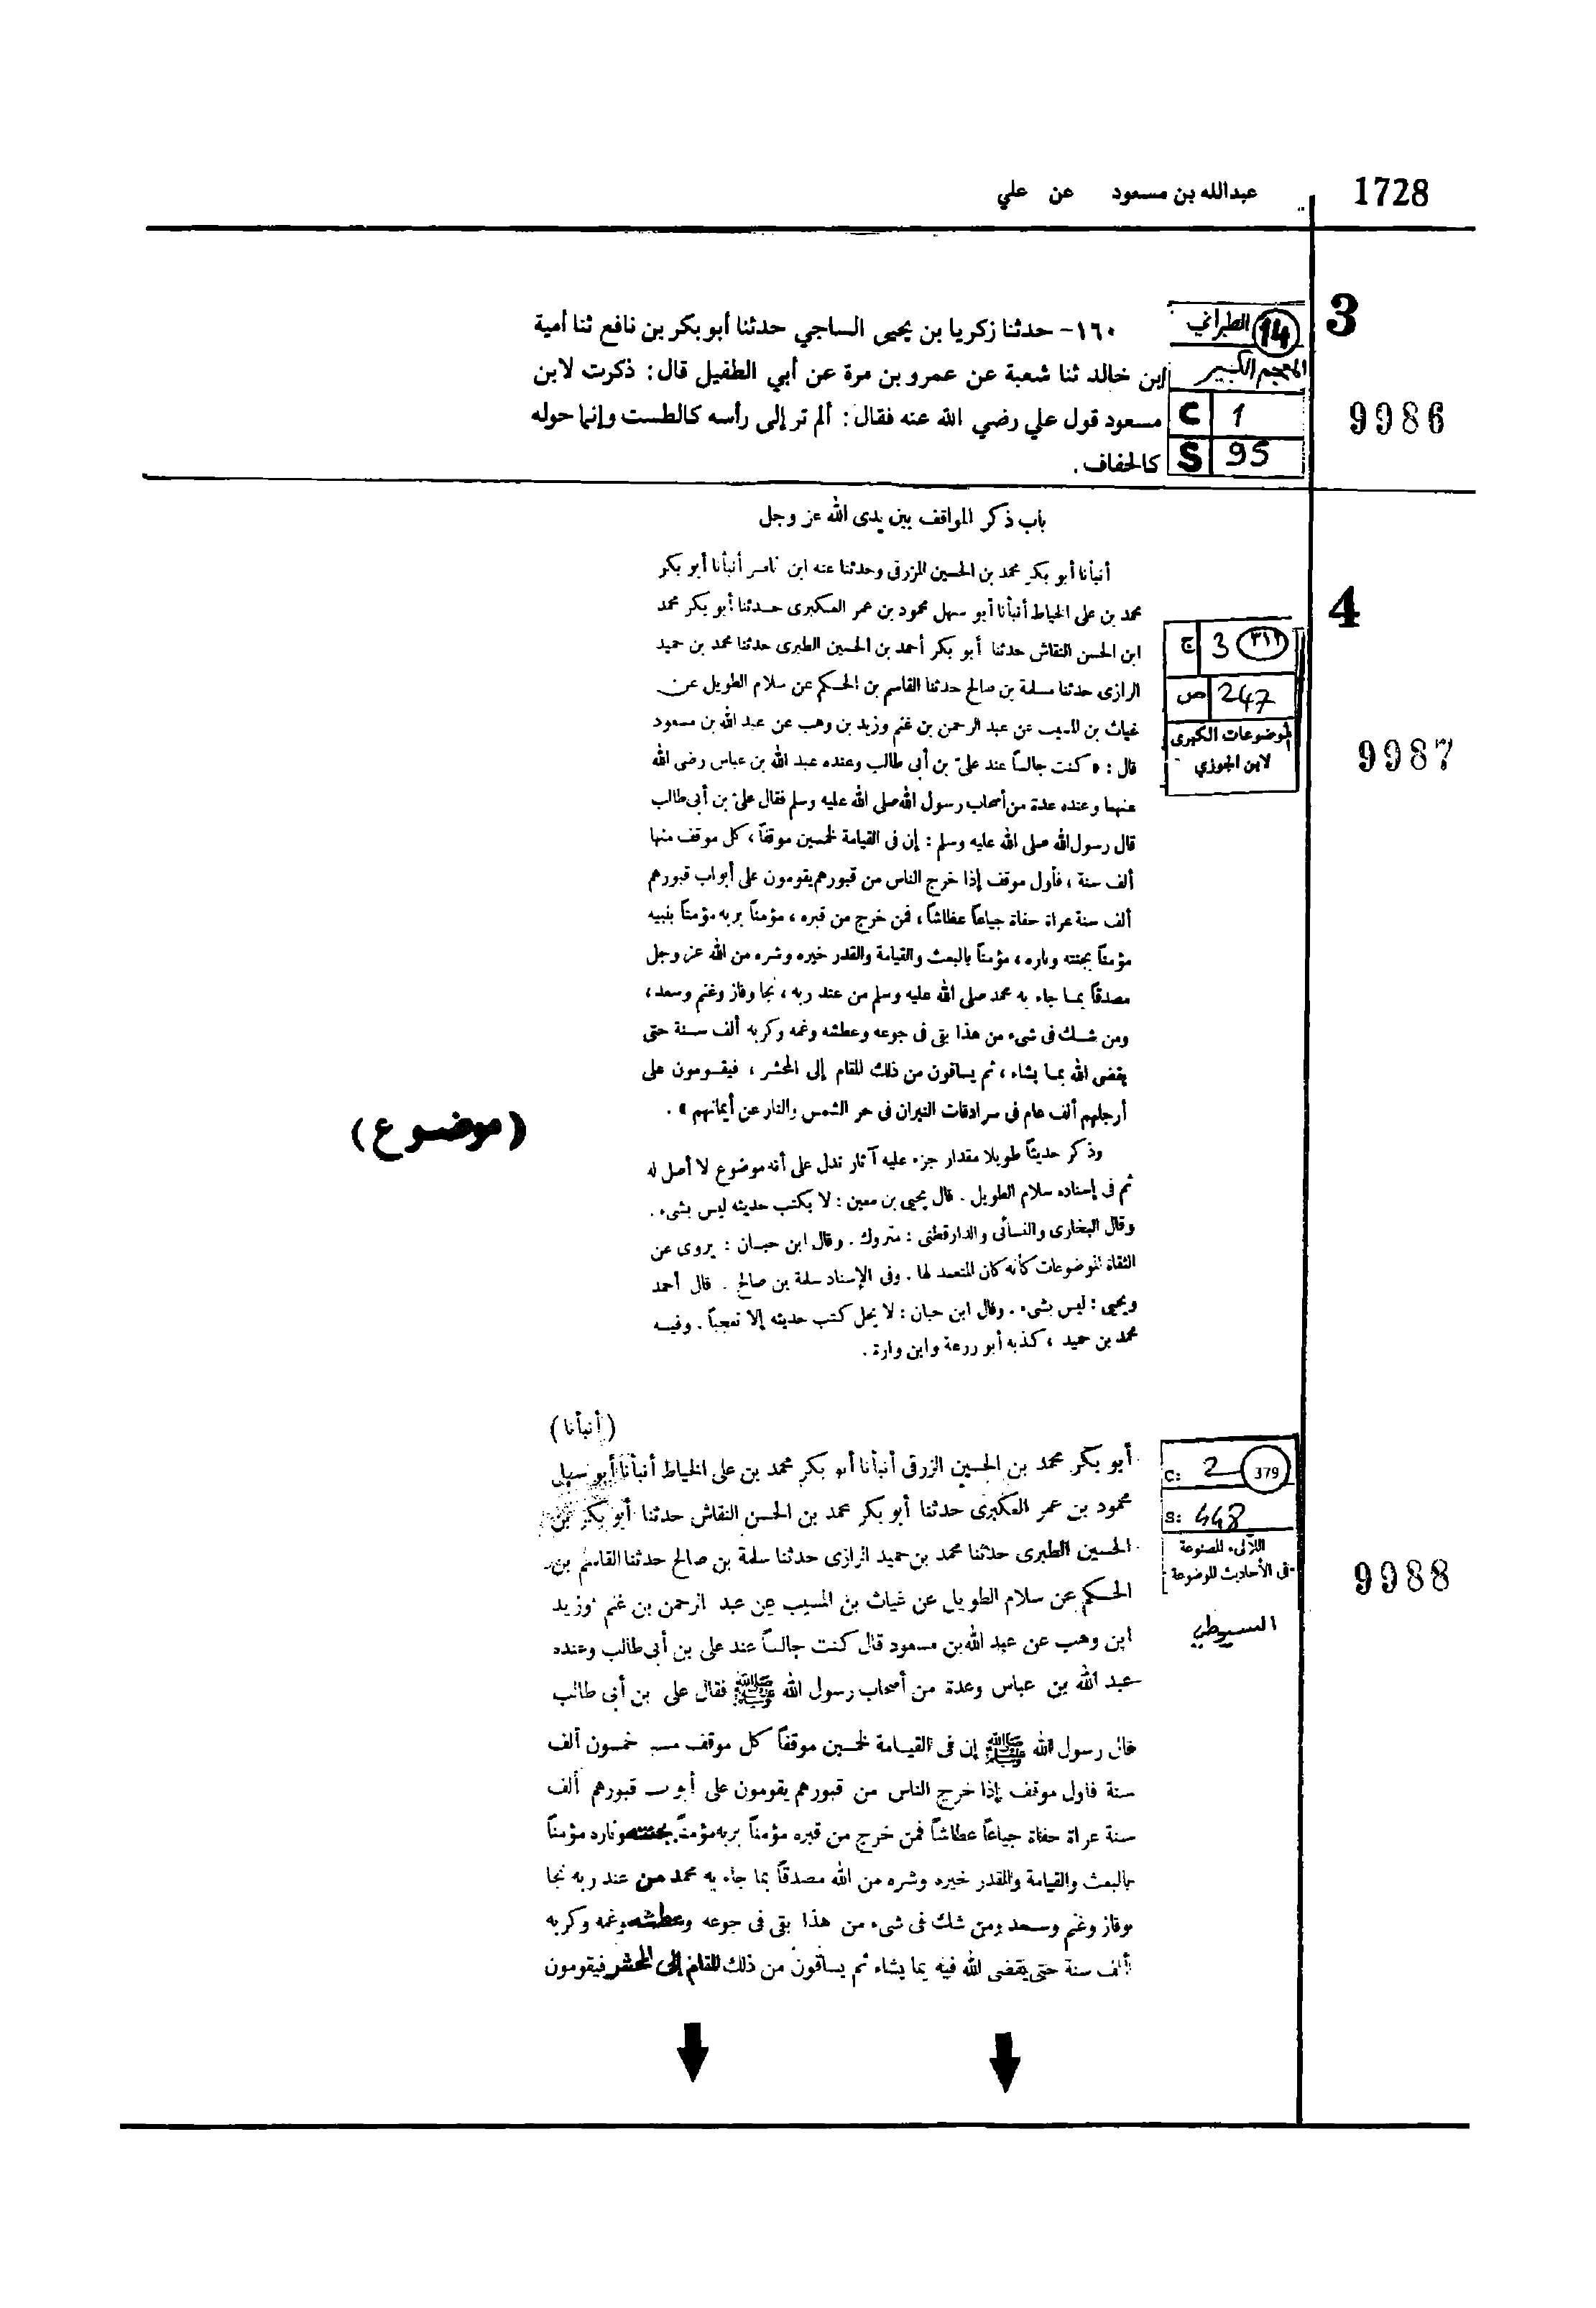 1728
عبدالله بن مسعود عن علي
3
14 الطبراني
المعجم الكبير
C 1
S 95
9986
١٦٠- حدثنا زكريا بن يحيى الساجي حدثنا أبو بكر بن نافع ثنا أمية
ابن خالد ثنا شعبة عن عمرو بن مرة عن أبي الطفيل قال: ذكرت لابن
مسعود قول علي رضي الله عنه فقال: ألم تر إلى رأسه كالطست وإنما حوله
كالحفاف.
باب ذكر المواقف بين يدى الله عز وجل
4
ج 3 ٣١٢
ص 247
الموضوعات الكبرى
لابن الجوزي
9987
أنبأنا أبو بكر محمد بن الحسين المزرقى وحدثنا عنه ابن ناصر أنبأنا أبو بكر
محمد بن على الخياط أنبأنا أبو سهل محمود بن عمر العكبرى حدثنا أبو بكر محمد
ابن الحسن النقاش حدثنا أبو بكر أحمد بن الحسين الطبرى حدثنا محمد بن حميد
الرازى حدثنا مسلمة بن صالح حدثنا القاسم بن الحكم عن سلام الطويل عن
غياث بن المسيب عن عبد الرحمن بن غنم وزيد بن وهب عن عبد الله بن مسعود
قال : « كنت جالساً عند علىّ بن أبى طالب وعنده عبد الله بن عباس رضى الله
عنهما وعنده عدة من أصحاب رسول الله صلى الله عليه وسلم فقال علىّ بن أبى طالب
قال رسول الله صلى الله عليه وسلم : إن فى القيامة لخمسين موقفاً ، كل موقف منها
ألف سنة ، فأول موقف إذا خرج الناس من قبورهم يقومون على أبواب قبورهم
ألف سنة عراة حفاة جياعاً عطاشاً ، فمن خرج من قبره ، مؤمناً بربه مؤمناً بنبيه
مؤمناً بجنته وناره ، مؤمناً بالبعث والقيامة والقدر خيره وشره من الله عز وجل
مصدقاً بما جاء به محمد صلى الله عليه وسلم من عند ربه ، نجا وفاز وغنم وسعد ،
ومن شك فى شىء من هذا بقى فى جوعه وعطشه وغمه وكربه ألف سنة حتى
يقضى الله بما يشاء ، ثم يساقون من ذلك المقام إلى المحشر ، فيقومون على
أرجلهم ألف عام فى سرادقات النيران فى حر الشمس والنار عن أيمانهم » .
(موضوع)
وذكر حديثاً طويلا مقدار جزء عليه آثار تدل على أنه موضوع لا أصل له
ثم فى إسناده سلام الطويل . قال يحيى بن معين : لا يكتب حديثه ليس بشىء .
وقال البخارى والنسائى والدارقطنى : متروك . وقال ابن حبان : يروى عن
الثقاة الموضوعات كأنه كان المتعمد لها . وفى الإسناد سلمة بن صالح . قال أحمد
ويحيى : ليس بشىء . وقال ابن حبان : لا يحل كتب حديثه إلا تعجباً . وفيه
محمد بن حميد ، كذبه أبو زرعة وابن وارة .
(أنبأنا)
C: 2 379
S: 448
اللآلىء المصنوعة
فى الأحاديث الموضوعة
السيوطي
9988
أبو بكر محمد بن الحسين الزرقى أنبأنا أبو بكر محمد بن على الخياط أنبأنا أبو سهل
محمود بن عمر العكبرى حدثنا أبو بكر محمد بن الحسن النقاش حدثنا أبو بكر بن
الحسين الطبرى حدثنا محمد بن حميد الرازى حدثنا سلمة بن صالح حدثنا القاسم بن
الحكم عن سلام الطويل عن غياث بن المسيب عن عبد الرحمن بن غنم وزيد
ابن وهب عن عبد الله بن مسعود قال كنت جالساً عند على بن أبى طالب وعنده
عبد الله بن عباس وعدة من أصحاب رسول الله ﷺ فقال على بن أبى طالب
قال رسول الله ﷺ إن فى القيامة لخمسين موقفاً كل موقف خمسون ألف
سنة فأول موقف إذا خرج الناس من قبورهم يقومون على أبواب قبورهم ألف
سنة عراة حفاة جياعاً عطاشاً فمن خرج من قبره مؤمناً بربه مؤمناً بجنته وناره مؤمناً
بالبعث والقيامة والقدر خيره وشره من الله مصدقاً بما جاء به محمد من عند ربه نجا
وفاز وغنم وسعد ومن شك فى شىء من هذا بقى فى جوعه وعطشه وغمه وكربه
ألف سنة حتى يقضى الله فيه بما يشاء ثم يساقون من ذلك المقام إلى المحشر فيقومون